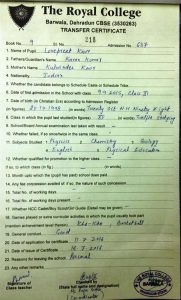 The Royal College
Barwala, Dehradun CBSE (3530263)
TRANSFER CERTIFICATE
Book No. 9 S.No. 218 Admission No. 687
1. Name of Pupil Lovepreet Kaur
2. Fathers/Guardian's Name Karan Kumar
3. Mother's Name Kulwinder Kaur
4. Nationality Indian
5. Whether the candidate belongs to Schedule Caste or Schedule Tribe
6. Date of first admission in the School with class
7. Date of birth (in Christian Era) according to Admission Register
8. Class in which the pupil last studied(in figures) XII
9. School/Board Annual examination last taken with result
10. Whether failed, if so once/twice in the same class
11. Subjects Studied : Physics , Chemistry , Biology
English , Physical Education
12. Whether qualified for promotion to the higher class
If so, to which class (in fig) (in words)
13. Month upto which the pupil has paid school dues paid
14. Any fee concession availed of: if so, the nature of such concession
15. Total No. of working days
16. Total No. of working days present
17. Whether NCC Cadet/Boy Scout/Girl Guide (Detail may be given)
18. Games played or some curricular activities in which the pupil usually took part
(mention achievement level therein) Kho-Kho, Basketball
19. General conduct Good
20. Date of application for certificate
21. Date of issue of Certificate
22. Reasons for leaving the school Personal
23. Any other remarks
Signature of
Class teacher